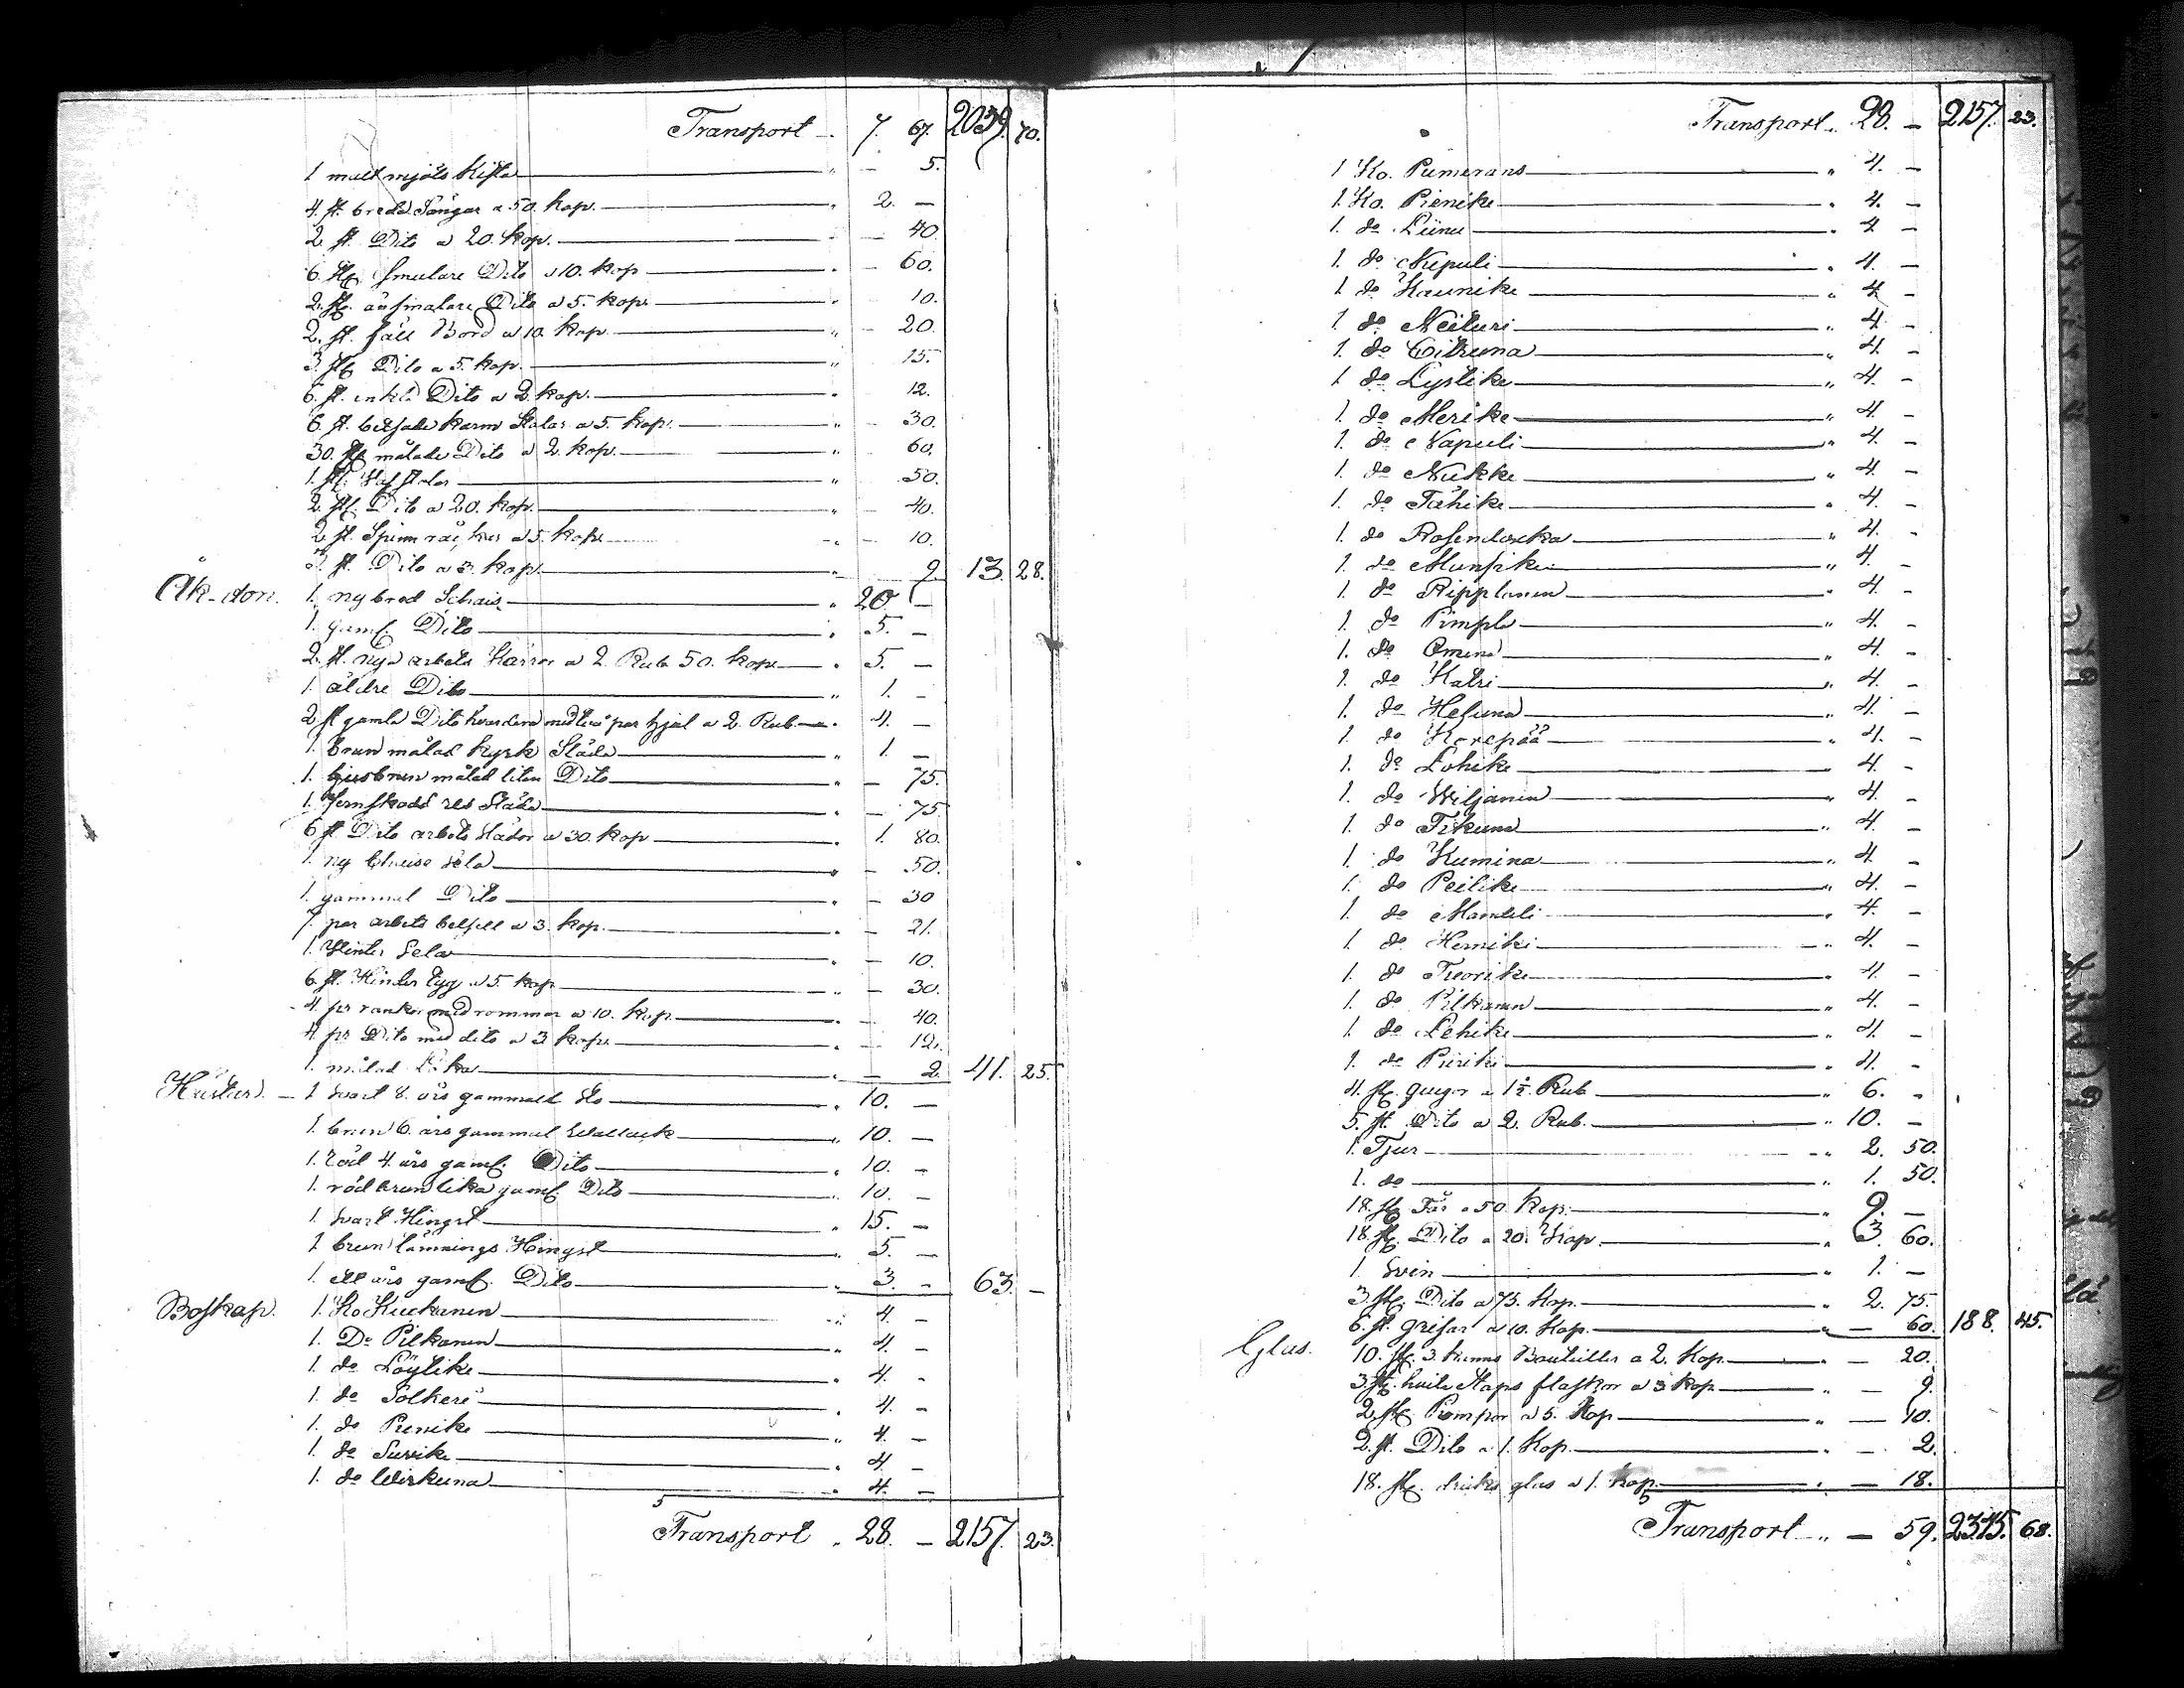 Transport . 7. 67. 2039. 70.
1 malt mjöls Kista " — 5.
4. st. breda Sängar a 50. kop. " 2. —
2. st. Dito a 20. kop. " — 40.
6. st. smalare Dito a 10. kop " — 60.
2. st. än smalare Dito a 5. kop. " — 10.
2. st. fäll Bord a 10. kop. " — 20.
3. st. Dito a 5. kop. " — 15.
6. st. enkla Dito a 2. kop. " — 12.
6. st. betsade karm Stolar a 5. kop. " — 30.
30. st. målade Dito a 2. kop. " — 60.
1. st. " 50.
2. st. Dito a 20. kop. " — 40.
2. st. Spinn a 5. kop. " — 10.
3. st. Dito a 3. kop. " 9. 13. 28.
Åk-don. 1. ny bred Schais " 20 —
1. gaml. Dito " 5. —
2. st. nya arbets Kärror a 2. Rub. 50. kop. " 5. —
1. äldre Dito " 1. —
2. st gamla Dito hvardera med två par hjul a 2. Rub. " 4. —
1. brun målad kyrk Släda " 1. —
1. ljusbrun målad liten Dito " — 75.
1. Jernskodd res Släda " — 75.
6. st. Dito arbets Slädor a 30. kop " 1. 80.
1. ny Chaise sela " — 50.
1. gammal Dito " — 30
7. par arbets a 3. kop. " — 21.
1. Sela " — 10.
6. st. a 5. kop " — 30.
4. pr rankor med rommar a 10. kop. " — 40.
4. pr Dito med dito a 3 kop. " — 12.
1. målad " — 2. 41. 25.
Hästar. — 1 svart 8. års gammalt Sto " 10. —
1. brun 6. års gammal Wallack " 10. —
1. röd 4. års gaml. Dito " 10. —
1. röd brun lika gaml. Dito " 10. —
1. svart Hingst " 15. —
1. brun lämnings Hingst " 5. —
1. ett års gaml. Dito " 3. — 63. —
Boskap. 1. Ko Kuckanen " 4. —
1. Do Pilkanen " 4. —
1. do Löytike " 4. —
1. do Solkeri " 4. —
1. do Pienike " 4. —
1. do Survike " 4. —
1. do Wirkuna " 4. —
Transport " 28. — 2157. 23.
Transport " 28. — 2157. 23.
1 Ko. Pumerans " 4. —
1. Ko. Pienike " 4. —
1. do Liinu " 4 —
1. do Nepuli " 4. —
1. do Kaunike " 4 —
1. do Neituri " 4 —
1. do Citruna " 4. —
1. do Lystike " 4. —
1. do Merike " 4. —
1. do Napuli " 4. —
1. do Nukke " 4. —
1. do Tähike " 4. —
1. do Rosendorka " 4. —
1. do Mansike " 4. —
1. do Ripplanen " 4. —
1. do Pimpla " 4. —
1. do Omena " 4. —
1. do Katri " 4. —
1. do Heluna " 4. —
1. do Korepää " 4. —
1. do Lohike " 4. —
1. do Wiljanen " 4. —
1. do Tirkuna " 4. —
1. do Kumina " 4. —
1. do Peilike " 4. —
1. do Manteli " 4. —
1. do Herniki " 4. —
1. do Tuorike " 4. —
1. do Pilkanen " 4. —
1. do Lehike " 4. —
1. do Piiriki " 4. —
4. st. quigor a 1½ Rub " 6. —
5. st. Dito a 2. Rub. " 10. —
1. Tjur " 2. 50.
1. do " 1. 50.
18. st. Får a 50 kop. " 9. —
18. st. Dito a 20. Kop. " 3. 60.
1. Svin " 1. —
3. st. Dito a 75. Kop. " 2. 75.
6. st. grisar a 10. Kop. " — 60. 188. 45.
Glas. 10. st. 3. kanns Bouteiller a 2. Kop. " — 20.
3. st. hvita Staps flaskor a 3 kop. " — 9.
2. st. Pompor a 5. Kop " — 10.
2. st. Dito a 1. Kop. " — 2.
18. st. dricks glas a 1. kop. " — 18.
Transport " — 59. 2345. 68.